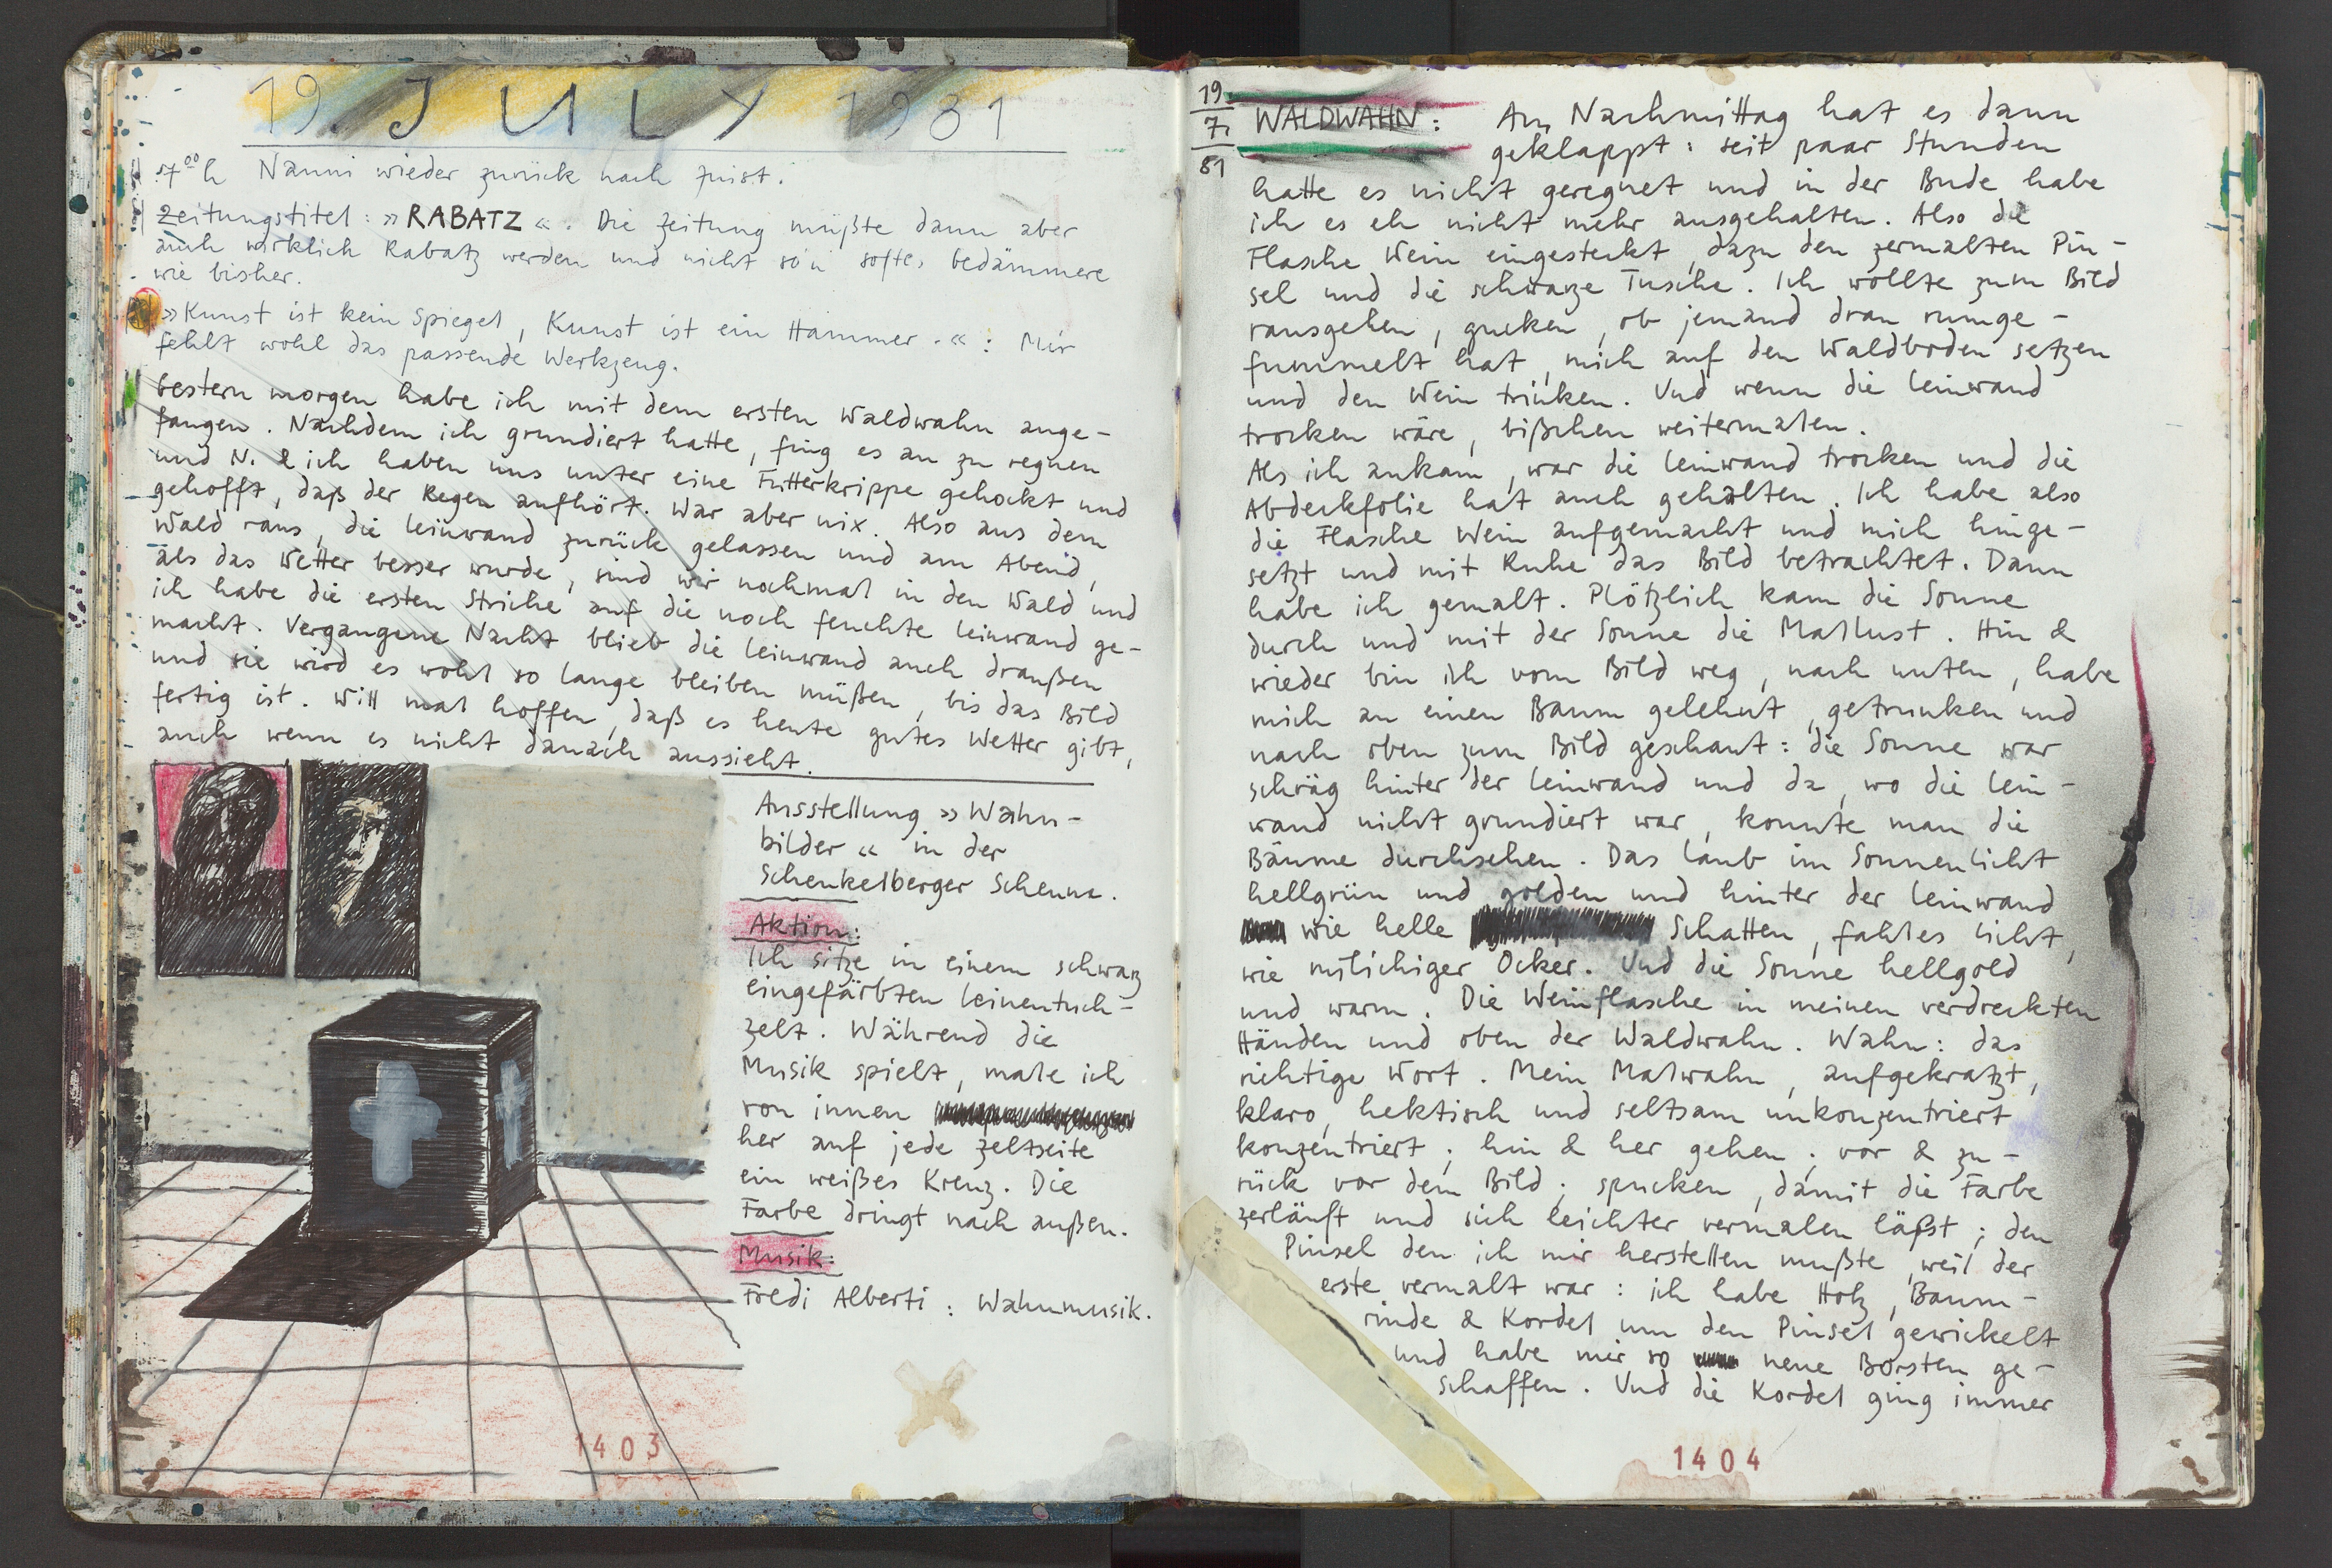 19. JULY 1981
17⁰⁰h Nanni wieder zurück nach Zuist.
Zeitungstitel: »RABATZ«. Die Zeitung müßte dann aber
auch wirklich Rabatz werden und nicht so'n softes, bedämmere
wie bisher.
»Kunst ist kein Spiegel, Kunst ist ein Hammer.«: Mir
fehlt wohl das passende Werkzeug.
Gestern morgen habe ich mit dem ersten Waldwahn ange-
fangen. Nachdem ich grundiert hatte, fing es an zu regnen
und N. & ich haben uns unter eine Futterkrippe gehockt und
gehofft, daß der Regen aufhört. War aber nix. Also aus dem
Wald raus, die Leinwand zurück gelassen und am Abend,
als das Wetter besser wurde, sind wir nochmal in den Wald und
ich habe die ersten Striche auf die noch feuchte Leinwand ge-
macht. Vergangene Nacht blieb die Leinwand auch draußen
und sie wird es wohl so lange bleiben müßen, bis das Bild
fertig ist. Will mal hoffen, daß es heute gutes Wetter gibt,
auch wenn es nicht danach aussieht.
Ausstellung »Wahn-
bilder« in der
Schenkelberger Scheune.
Aktion:
Ich sitze in einem schwarz
eingefärbten Leinentuch-
zelt. Während die
Musik spielt, male ich
von innen
her auf jede Zeltseite
ein weißes Kreuz. Die
Farbe dringt nach außen.
Musik:
Fredi Alberti: Wahnmusik.
1403
19.
7.
81
WALDWAHN: Am Nachmittag hat es dann
geklappt: seit paar Stunden
hatte es nicht geregnet und in der Bude habe
ich es eh nicht mehr ausgehalten. Also die
Flasche Wein eingesteckt, dazu den zermalten Pin-
sel und die schwarze Tusche. Ich wollte zum Bild
rausgehen, gucken, ob jemand dran rumge-
fummelt hat, mich auf den Waldboden setzen
und den Wein trinken. Und wenn die Leinwand
trocken wäre, bißchen weitermalen.
Als ich ankam, war die Leinwand trocken und die
Abdeckfolie hat auch gehalten. Ich habe also
die Flasche Wein aufgemacht und mich hinge-
setzt und mit Ruhe das Bild betrachtet. Dann
habe ich gemalt. Plötzlich kam die Sonne
durch und mit der Sonne die Mallust. Hin &
wieder bin ich vom Bild weg, nach unten, habe
mich an einen Baum gelehnt, getrunken und
nach oben zum Bild geschaut: die Sonne war
schräg hinter der Leinwand und da, wo die Lein-
wand nicht grundiert war, konnte man die
Bäume durchsehen. Das Laub im Sonnenlicht
hellgrün und golden und hinter der Leinwand
wie helle Schatten, fahles Licht,
wie milchiger Ocker. Und die Sonne hellgold
und warm. Die Weinflasche in meinen verdreckten
Händen und oben der Waldwahn. Wahn: das
richtige Wort. Mein Malwahn, aufgekratzt,
klaro, hektisch und seltsam unkonzentriert
konzentriert; hin & her gehen; vor & zu-
rück vor dem Bild; spucken, damit die Farbe
zerläuft und sich leichter vermalen läßt; den
Pinsel den ich mir herstellen mußte, weil der
erste vermalt war: ich habe Holz, Baum-
rinde & Kordel um den Pinsel gewickelt
und habe mir so neue Borsten ge-
schaffen. Und die Kordel ging immer
1404